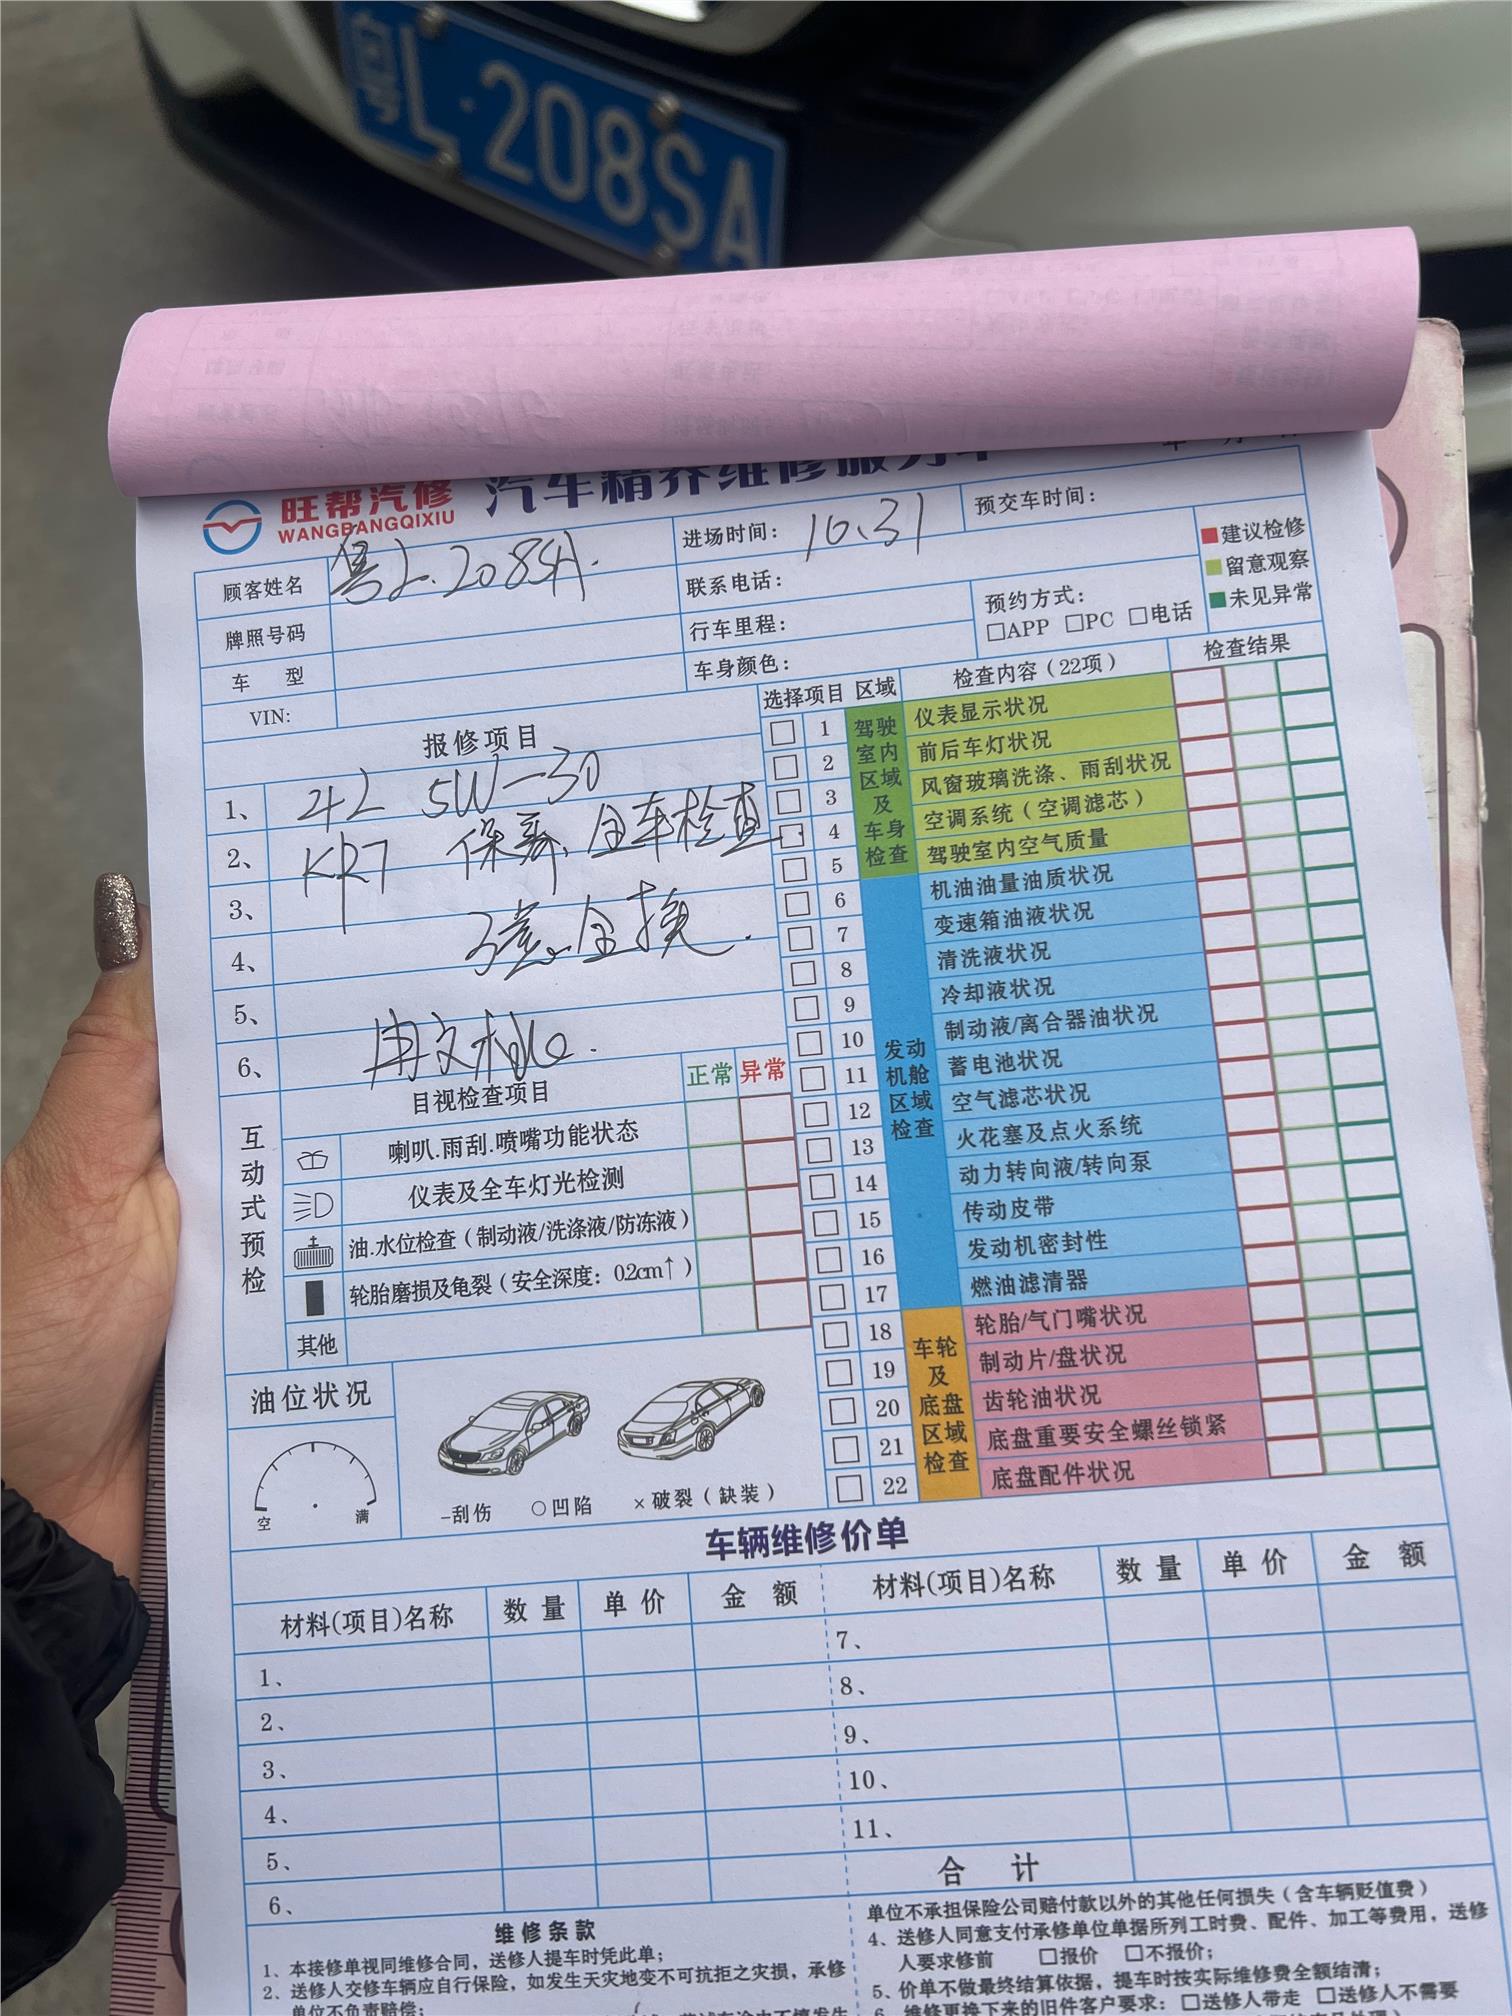 粤L·208SA
旺帮汽修
WANGBANGQIXIU
汽车精养维修服务单
年 月
顾客姓名
粤L.208SA.
进场时间：
10.31
预交车时间：
牌照号码
联系电话：
车 型
行车里程：
预约方式：
□APP □PC □电话
VIN:
车身颜色：
建议检修
留意观察
未见异常
报修项目
1、 4L 5W-30
2、 KR7 保养、全车检查.
3、
4、 3滤.全换.
5、
6、
目视检查项目 正常 异常
互动式预检
喇叭.雨刮.喷嘴功能状态
仪表及全车灯光检测
油.水位检查（制动液/洗涤液/防冻液）
轮胎磨损及龟裂（安全深度：0.2cm↑）
其他
油位状况
空 满
-刮伤 ○凹陷 ×破裂（缺装）
选择项目 区域 检查内容（22项） 检查结果
驾驶室内区域及车身检查
1 仪表显示状况
2 前后车灯状况
3 风窗玻璃洗涤、雨刮状况
4 空调系统（空调滤芯）
5 驾驶室内空气质量
发动机舱区域检查
6 机油油量油质状况
7 变速箱油液状况
8 清洗液状况
9 冷却液状况
10 制动液/离合器油状况
11 蓄电池状况
12 空气滤芯状况
13 火花塞及点火系统
14 动力转向液/转向泵
15 传动皮带
16 发动机密封性
17 燃油滤清器
车轮及底盘区域检查
18 轮胎/气门嘴状况
19 制动片/盘状况
20 齿轮油状况
21 底盘重要安全螺丝锁紧
22 底盘配件状况
车辆维修价单
材料(项目)名称 数 量 单 价 金 额 材料(项目)名称 数 量 单 价 金 额
1、 7、
2、 8、
3、 9、
4、 10、
5、 11、
6、 合 计
维修条款
1、本接修单视同维修合同，送修人提车时凭此单；
2、送修人交修车辆应自行保险，如发生天灾地变不可抗拒之灾损，承修
单位不负责赔偿；
单位不承担保险公司赔付款以外的其他任何损失（含车辆贬值费）
4、送修人同意支付承修单位单据所列工时费、配件、加工等费用，送修
人要求修前 □报价 □不报价；
5、价单不做最终结算依据，提车时按实际维修费全额结清；
6、维修更换下来的旧件客户要求：□送修人带走 □送修人不需要